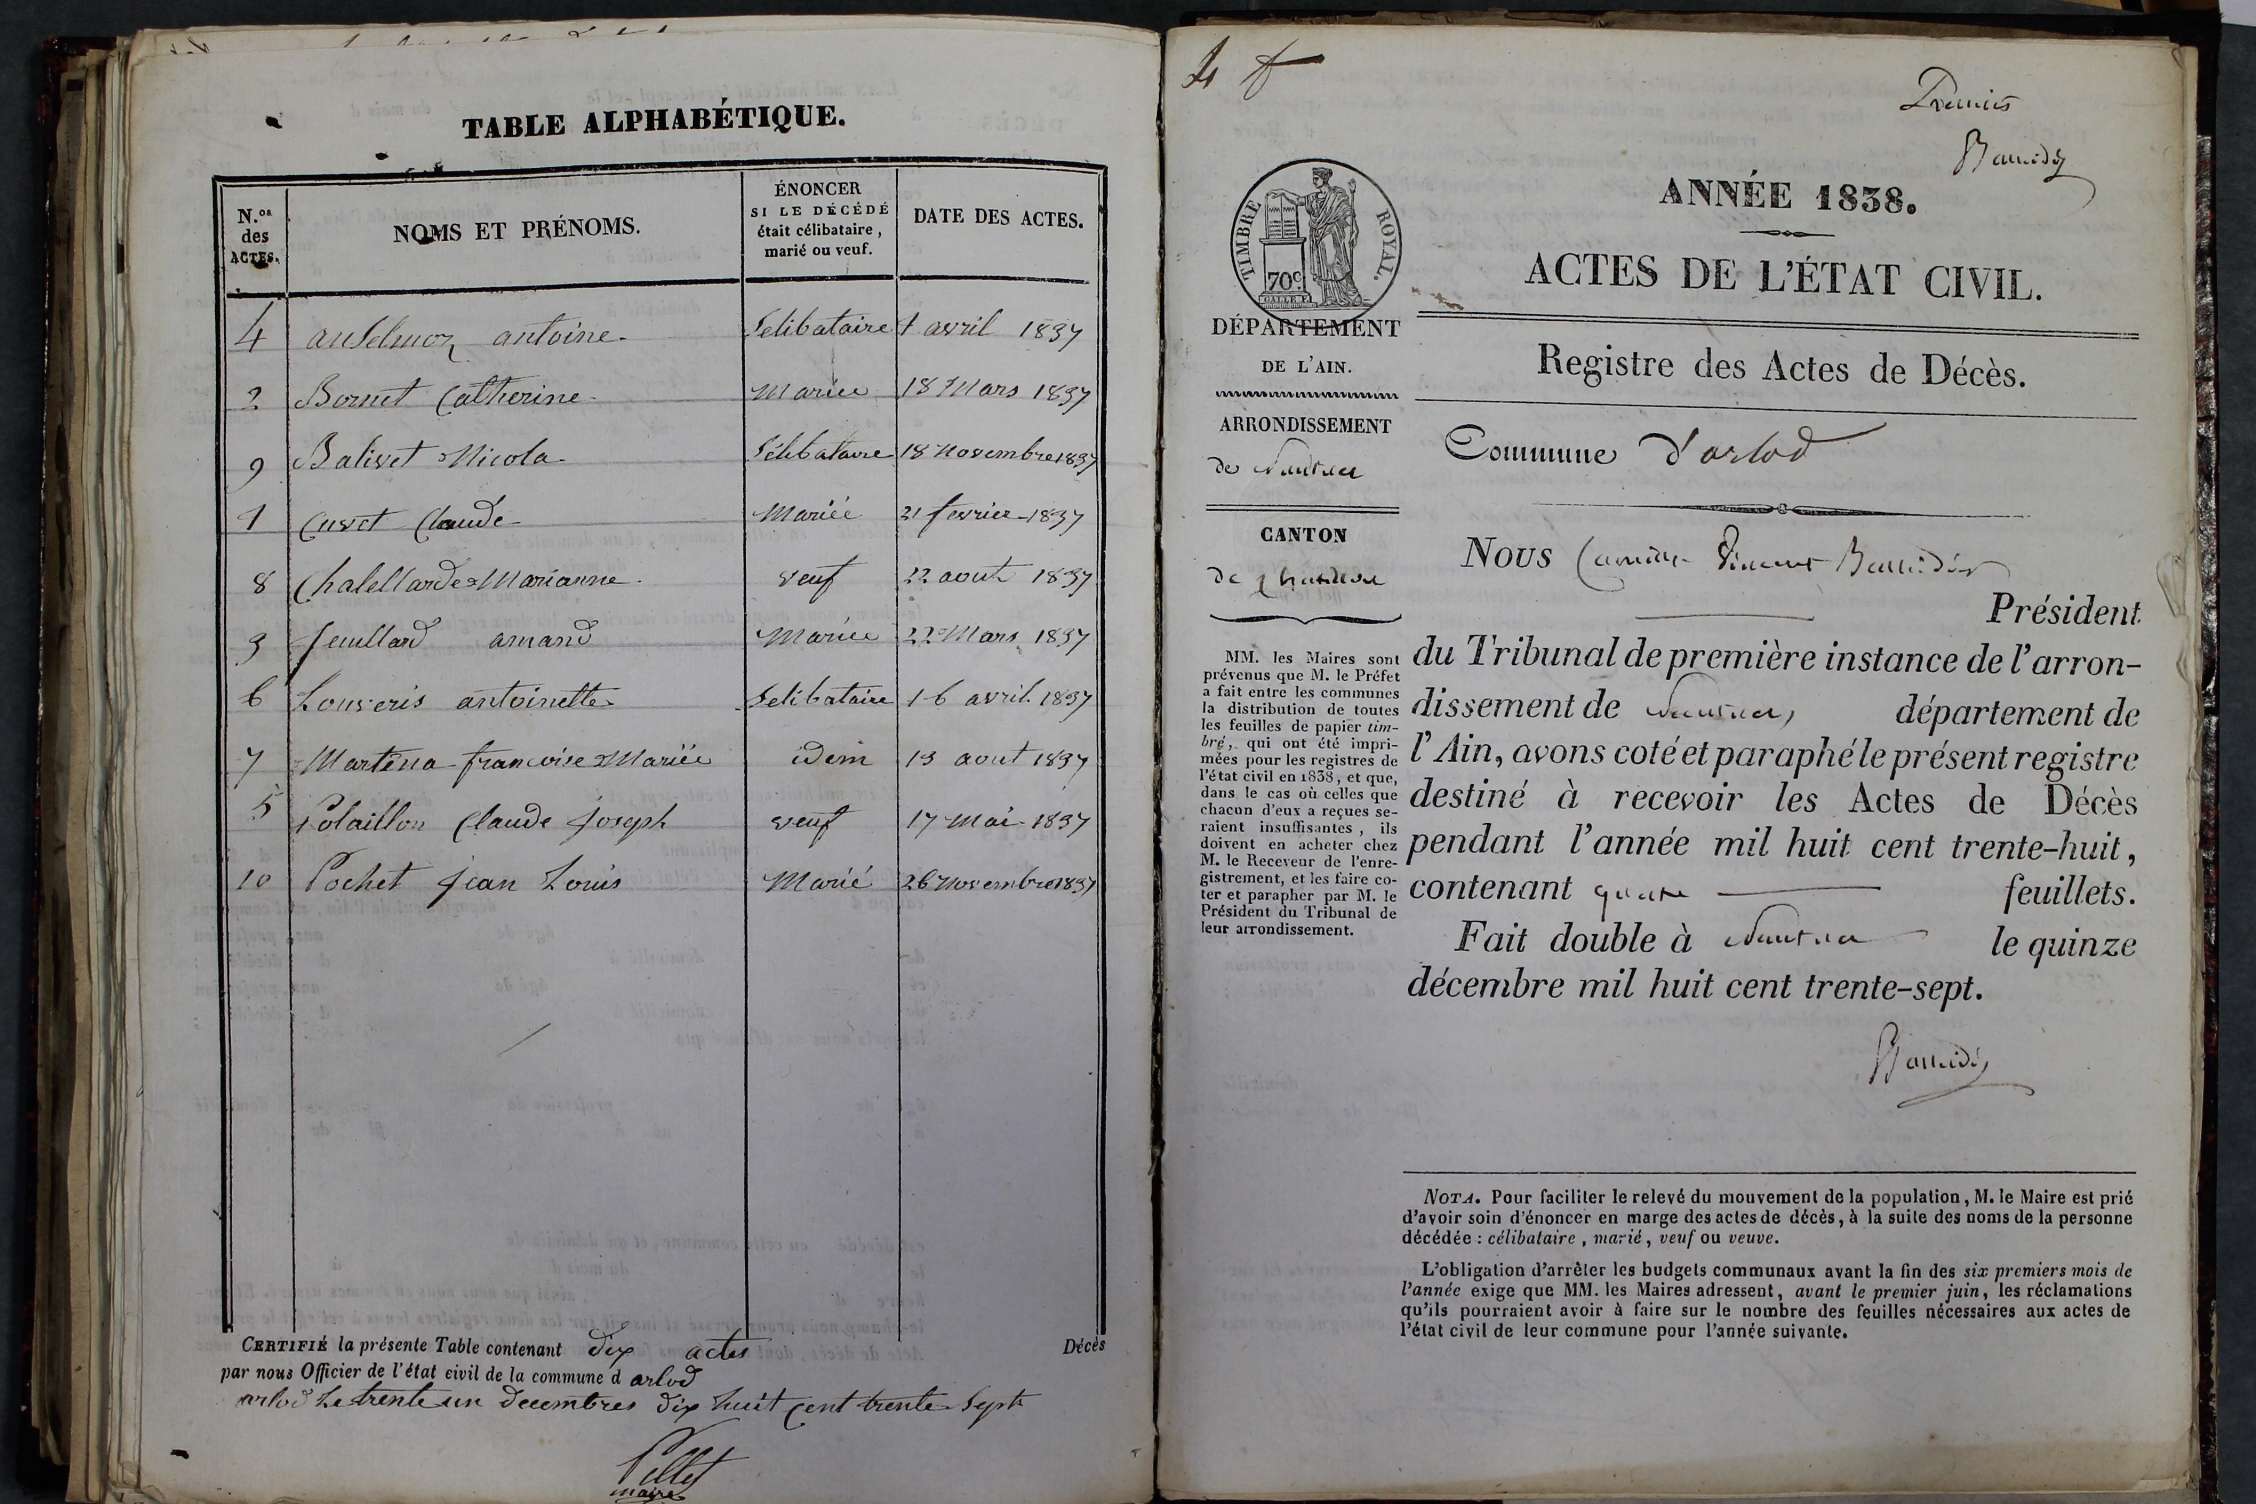 TABLE ALPHABÉTIQUE.
N.os des ACTES.
NOMS ET PRÉNOMS.
ÉNONCER SI LE DÉCÉDÉ était célibataire, marié ou veuf.
DATE DES ACTES.
4 anselmoz antoine Selibataire 1 avril 1837
2 Bornet Catherine Mariée 18 Mars 1837
9 Balivet Nicola Sélibataire 18 Novembre 1837
1 Cuvet Claude Mariée 21 fevrier 1837
8 Chalellarde Marianne veuf 22 aout 1837
3 feuillard amand Mariée 22 Mars 1837
6 Louveris antoinette Selibataire 16 avril 1837
7 Martena francoise Mariée idem 13 aout 1837
5 Polaillon Claude Joseph veuf 17 Mai 1837
10 Pochet Jean Louis Marié 26 Novembre 1837
CERTIFIÉ la présente Table contenant dix actes Décès
par nous Officier de l'état civil de la commune d arlod
arlod Le trente un decembres dix huit cent trente Sept
Pellet
maire
Premier
TIMBRE ROYAL.
70c.
ANNÉE 1838.
ACTES DE L'ÉTAT CIVIL.
DÉPARTEMENT
DE L'AIN.
ARRONDISSEMENT
de Nantua
CANTON
de Chatillon
MM. les Maires sont
prévenus que M. le Préfet
a fait entre les communes
la distribution de toutes
les feuilles de papier tim-
bré, qui ont été impri-
mées pour les registres de
l'état civil en 1838, et que,
dans le cas où celles que
chacun d'eux a reçues se-
raient insuffisantes, ils
doivent en acheter chez
M. le Receveur de l'enre-
gistrement, et les faire co-
ter et parapher par M. le
Président du Tribunal de
leur arrondissement.
Registre des Actes de Décès.
Commune d'arlod
Nous Vincent
Président
du Tribunal de première instance de l'arron-
dissement de Nantua, département de
l'Ain, avons coté et paraphé le présent registre
destiné à recevoir les Actes de Décès
pendant l'année mil huit cent trente-huit,
contenant quatre feuillets.
Fait double à Nantua le quinze
décembre mil huit cent trente-sept.
NOTA. Pour faciliter le relevé du mouvement de la population, M. le Maire est prié
d'avoir soin d'énoncer en marge des actes de décès, à la suite des noms de la personne
décédée : célibataire, marié, veuf ou veuve.
L'obligation d'arrêter les budgets communaux avant la fin des six premiers mois de
l'année exige que MM. les Maires adressent, avant le premier juin, les réclamations
qu'ils pourraient avoir à faire sur le nombre des feuilles nécessaires aux actes de
l'état civil de leur commune pour l'année suivante.